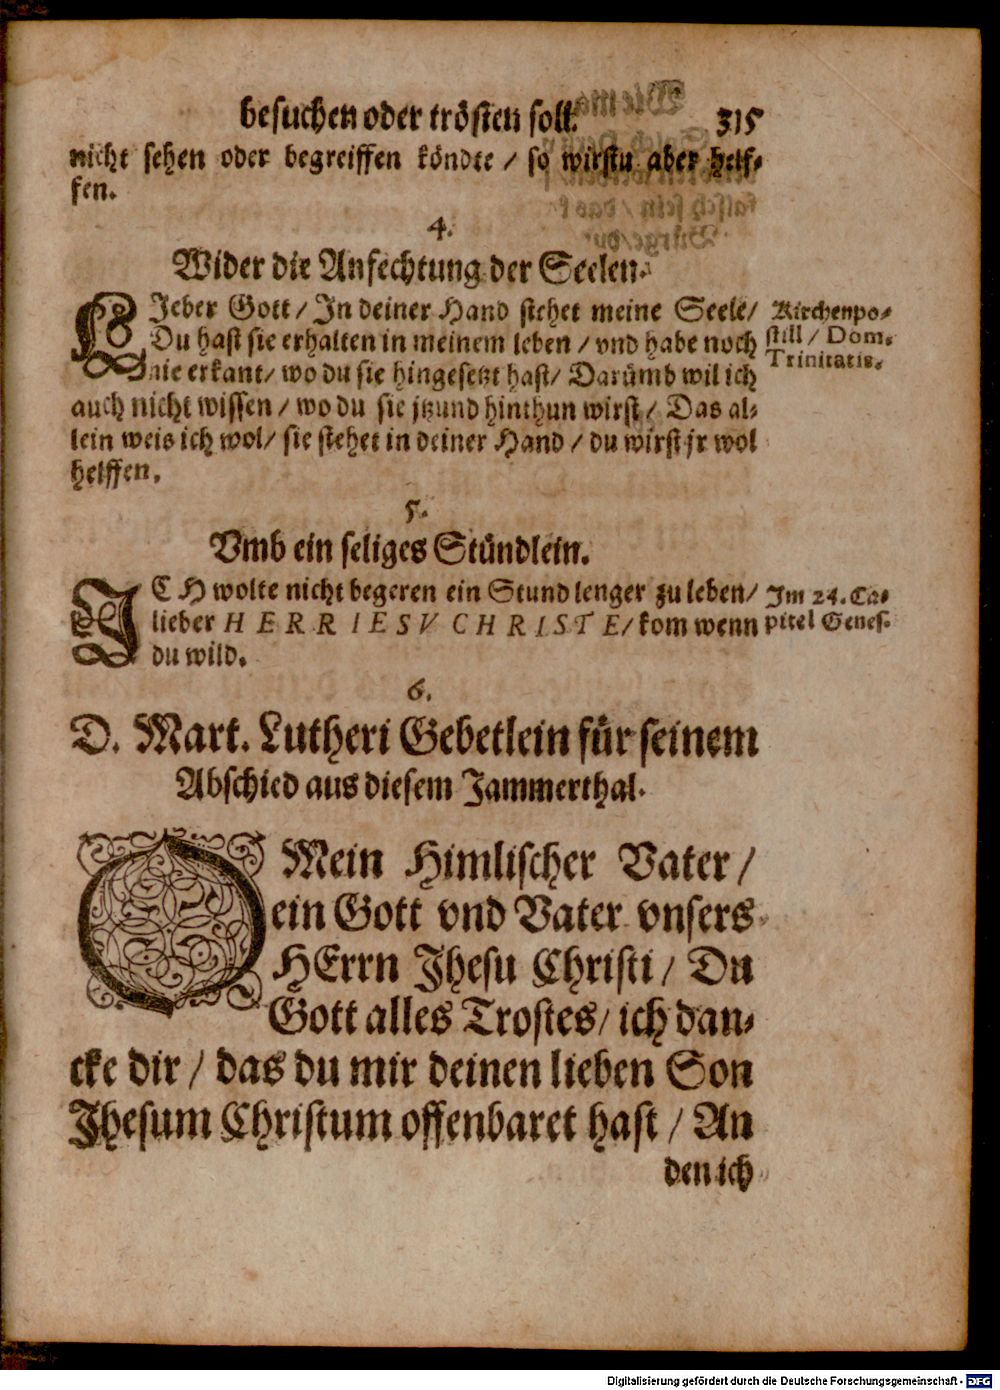 besuchen oder trösten soll. 315
nicht sehen oder begreiffen köndte / so wirstu aber helf-
fen.
4.
Wider die Anfechtung der Seelen.
LJeber Gott / In deiner Hand stehet meine Seele/
Du hast sie erhalten in meinem leben / vnd habe noch
nie erkant/ wo du sie hingesetzt hast/ Darümb wil ich
auch nicht wissen / wo du sie jtzund hinthun wirst / Das al-
lein weis ich wol/ sie stehet in deiner Hand / du wirst jr wol
helffen.
Kirchenpo-
still / Dom.
Trinitatis.
5.
Vmb ein seliges Stündlein.
ICH wolte nicht begeren ein Stund lenger zu leben/
lieber HERR IESV CHRISTE/ kom wenn
du wild.
Im 24. Ca-
pitel Genes.
6.
D. Mart. Lutheri Gebetlein für seinem
Abschied aus diesem Jammerthal.
O Mein Himlischer Vater /
ein Gott vnd Vater vnsers
HErrn Jhesu Christi / Du
Gott alles Trostes/ ich dan-
cke dir / das du mir deinen lieben Son
Jhesum Christum offenbaret hast / An
den ich
Digitalisierung gefördert durch die Deutsche Forschungsgemeinschaft - DFG